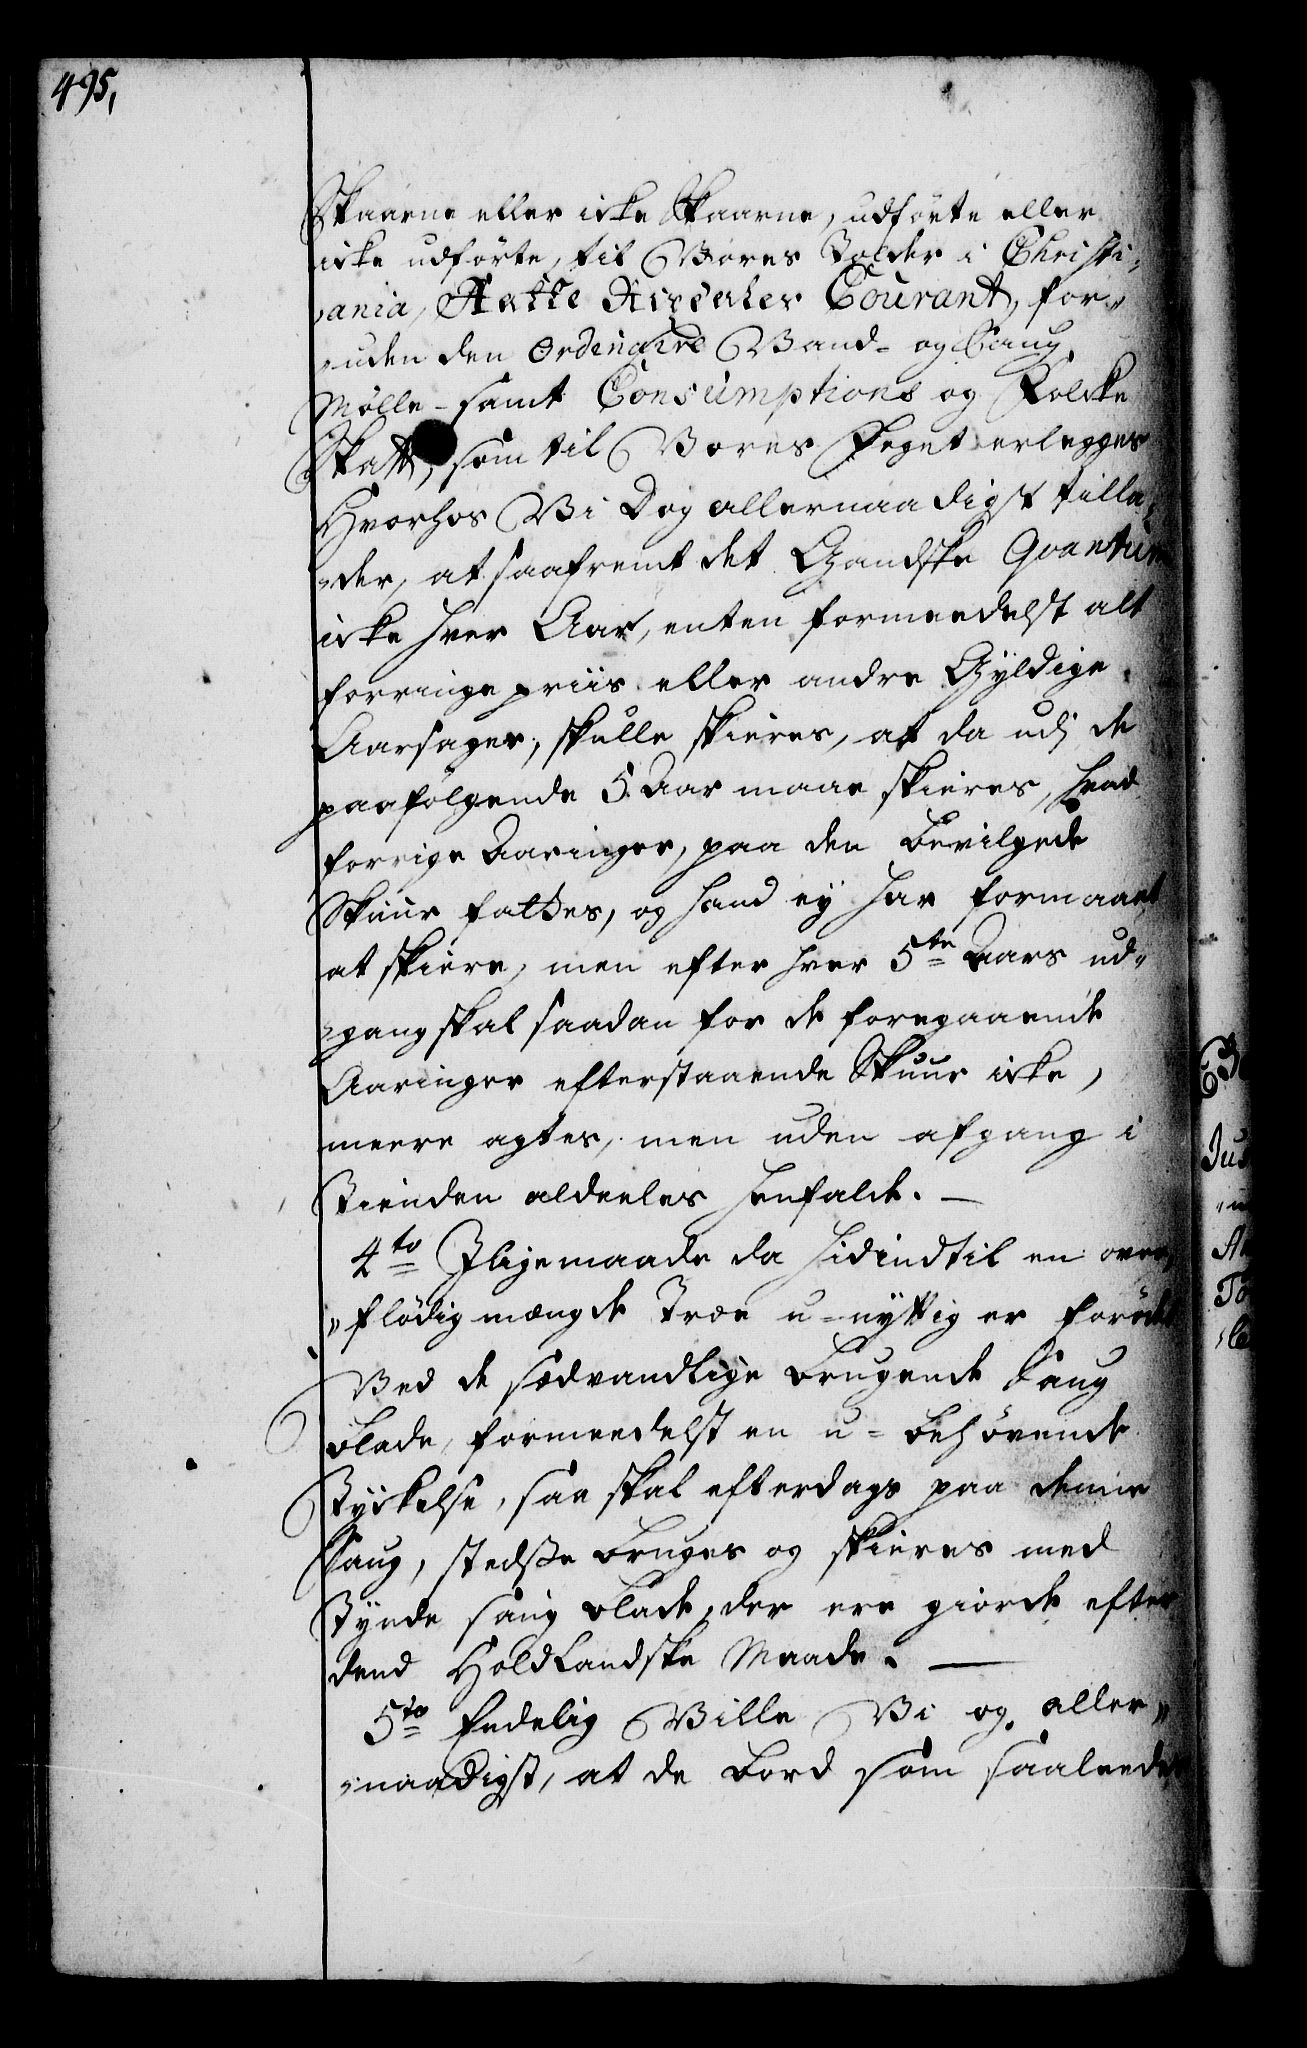 495,
Skaarne eller icke Skaarne, udförte eller
icke udförte, til Vores Tolder i Christi-
ania, Aatte Rixdaler Courant, for-
uden den Ordinaire Vand- og Saug
Mølle- samt Consumptions og Folcke
Skatt, som til Vores Foget erlegges
Hvorhos Vi Dog allernaadigst tilla-
der, at saafremt det Gandske Qvantum
icke hver Aar, enten formeedelst alt
forringe priis eller andre Gyldige
Aarsager, skulle skieres, at da udj de
paafølgende 5 Aar maae skieres, hvad
forrige Aaringer, paa den bevilgede
Skuur fattes, og hand ey har formaaet
at skiere, men efter hver 5te Aars ud-
gang skal saadan for de foregaaende
Aaringer efterstaaende Skuur icke,
meere agtes, men uden afgang i
Tienden aldeeles henfalde. —
4to Jligemaade da hidindtil en over-
flödig mængde Træe u-nyttig er forödt
Ved de sædvandlige brugende Saug
blade, formeedelst en u-behövende
Tyckelse, saa skal efterdags paa denne
Saug, stedsse bruges og skieres med
Tynde saug blade, der ere giorde efter
dend Holdlandske Maade. —
5to Endelig Ville Vi og aller-
naadigst, at de bord som saaleedes